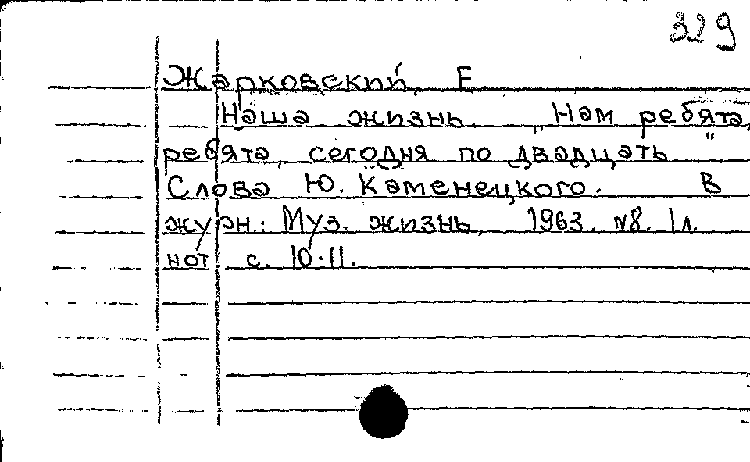 329
Жарковский, Е
Наша жизнь. „Нам ребята,
ребята, сегодня по двадцать"
Слова Ю. Каменецкого. В
журн.: Муз. жизнь, 1963. №8. 1л.
нот с. 10-11.